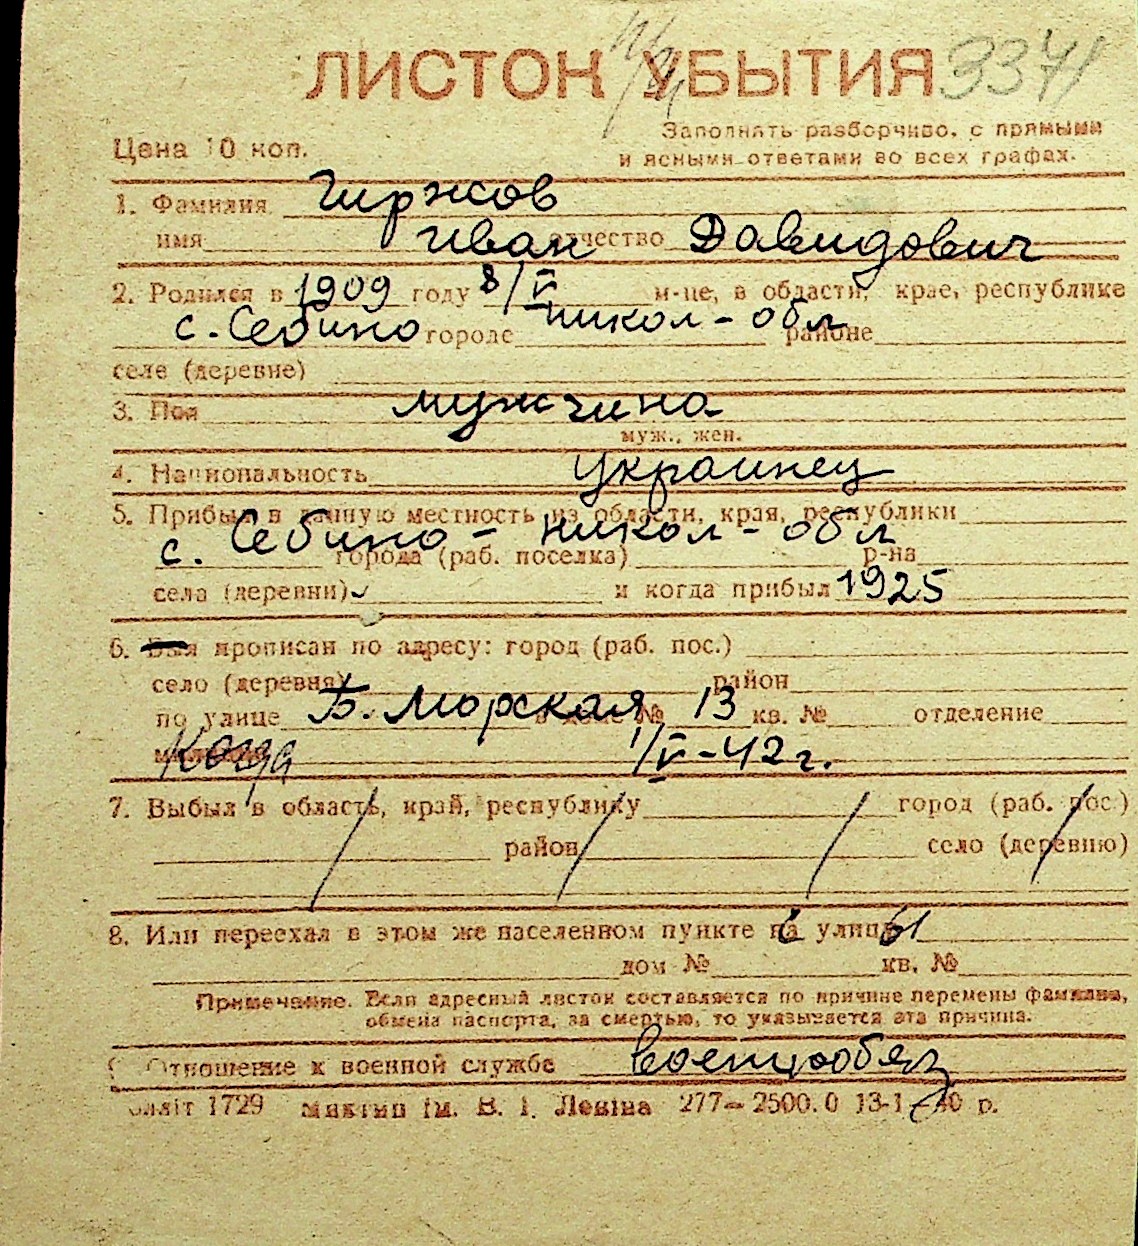 ЛИСТОН УБЫТИЯ 3371
Цена 10 коп.
Заполнять разборчиво, с прямыми
и ясными ответами во всех графах.
1. Фамилия Гиржов
имя Иван отчество Давидович
2. Родился в 1909 году 8/V м-це, в области, крае, республике
с. Себино городе никол-обл районе
селе (деревне)
3. Пол мужчина
муж., жен.
4. Национальность украинец
5. Прибыл в данную местность из области, края, республики
с. Себино - никол-обл города (раб. поселка) р-на
села (деревни) и когда прибыл 1925
6. прописан по адресу: город (раб. пос.)
село (деревня) район
по улице Б. Морская в доме № 13 кв. № отделение
Когда 1/V-42 г.
7. Выбыл в область, край, республику город (раб. пос.)
район село (деревню)
8. Или переехал в этом же населенном пункте на улицу 61
дом № кв. №
Примечание. Если адресный листок составляется по причине перемены фамилии,
обмена паспорта, за смертью, то указывается эта причина.
Отношение к военной службе военнообяз
1729 ім. В. І. Леніна 277—2500.0 13-1-40 р.